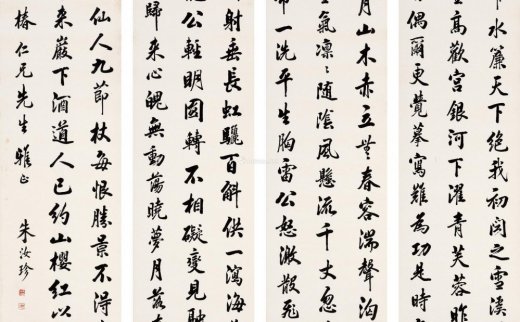 水簾天下絕我初聞之雪溪
高歡宮銀河下濯青芙蓉昨
偶爾更覺摹寫難為功是時
月山木赤立無春容湍聲洶
氣凜〻隨陰風懸流千丈忽
一洗平生胸雷公怒激散飛
射垂長虹驪百斛供一瀉海
公輕明圓轉不相礙變見
歸來心魄無動蕩曉夢月落
仙人九節杖每恨勝景不得
來巖下酒道人已約山櫻紅以
椿仁兄先生雅正 朱汝珍